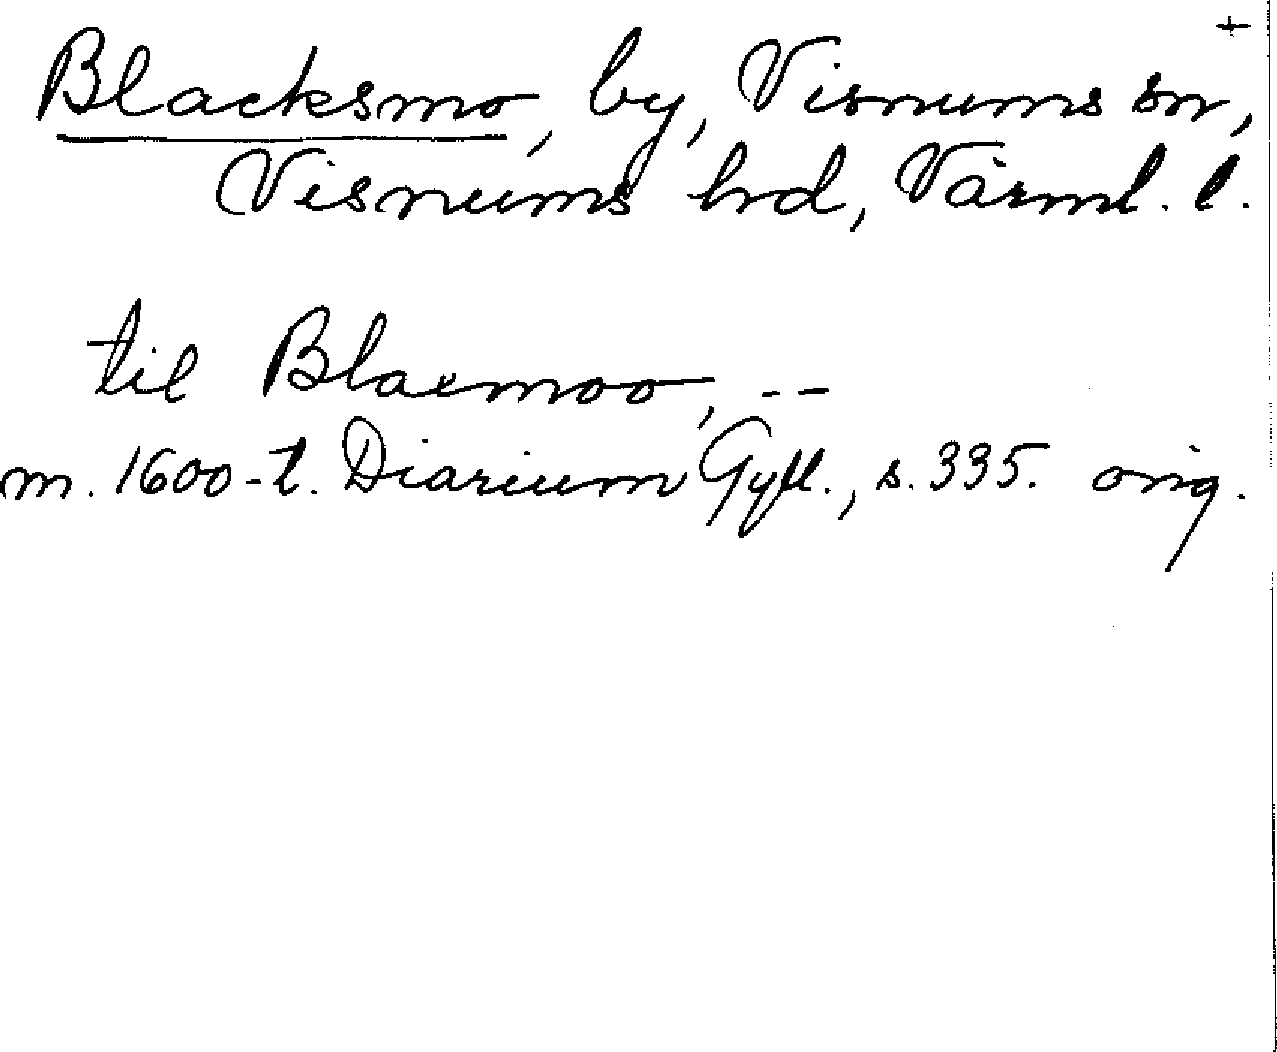 +
Blacksmo, by, Visnums sn,
Visnums hd, Värml. l.
til Blaemoo, --
m. 1600-t. Diarium Gyll., s. 335. orig.